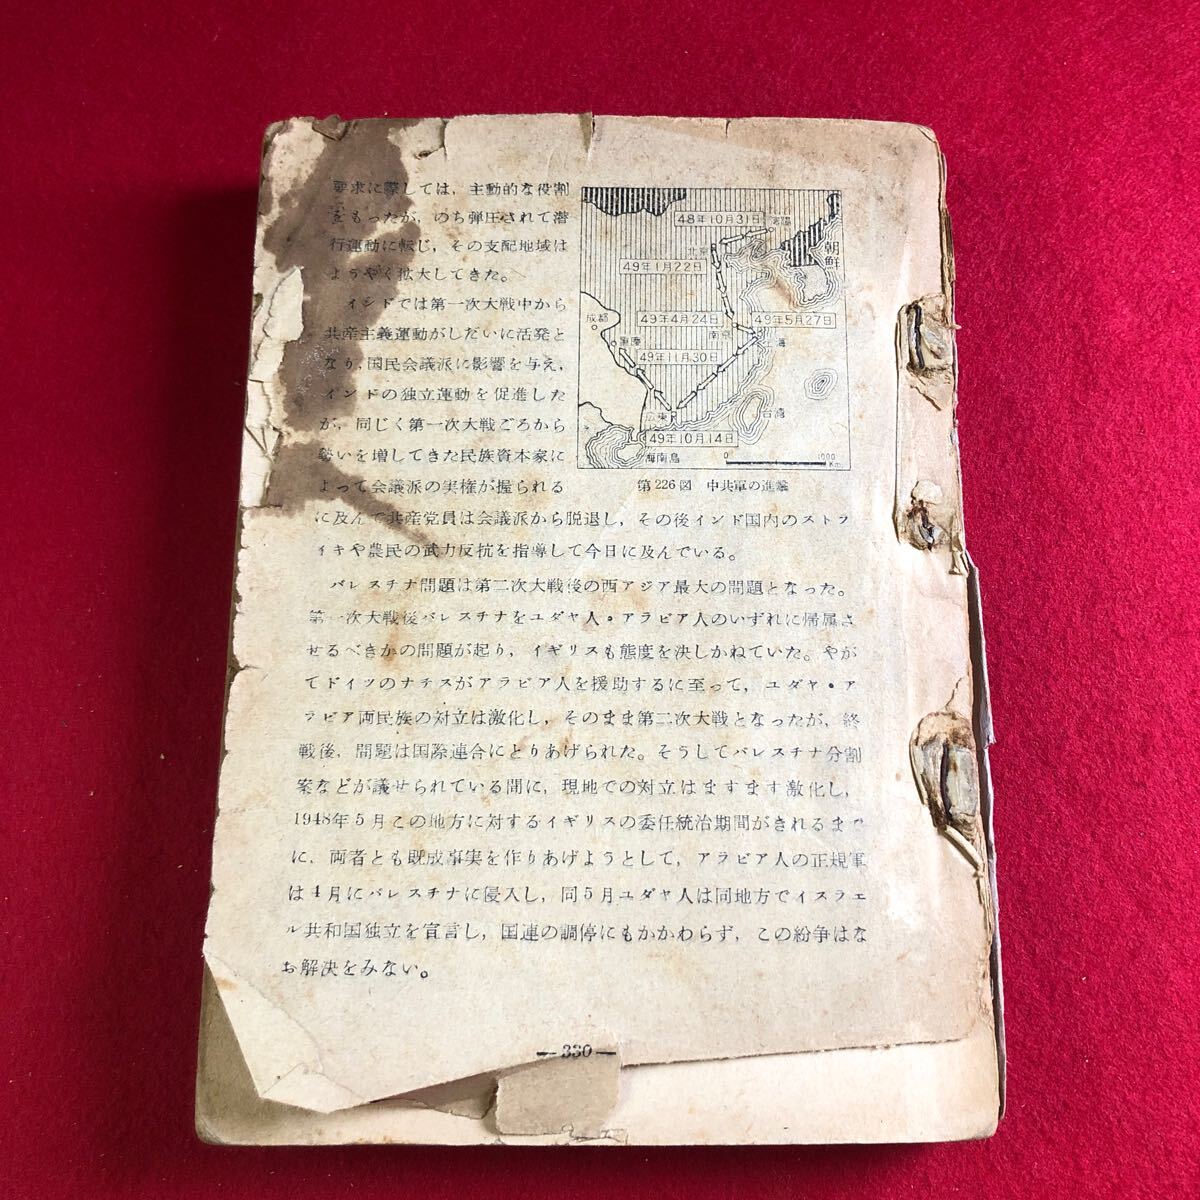 要求に際しては，主動的な役割
をもったが，のち弾圧されて潜
行運動に転じ，その支配地域は
ようやく拡大してきた。
インドでは第一次大戦中から
共産主義運動がしだいに活発と
なり，国民会議派に影響を与え，
インドの独立運動を促進した
が，同じく第一次大戦ごろから
勢いを増してきた民族資本家に
よって会議派の実権が握られる
に及んで共産党員は会議派から脱退し，その後インド国内のストラ
イキや農民の武力反抗を指導して今日に及んでいる。
48年10月31日
瀋陽
北京
朝鮮
49年1月22日
成都
49年4月24日
49年5月27日
南京
上海
重慶
49年11月30日
広東
台湾
49年10月14日
海南島
0 1000
Km
第226図 中共軍の進撃
パレスチナ問題は第二次大戦後の西アジア最大の問題となった。
第一次大戦後パレスチナをユダヤ人・アラビア人のいずれに帰属さ
せるべきかの問題が起り，イギリスも態度を決しかねていた。やが
てドイツのナチスがアラビア人を援助するに至って，ユダヤ・ア
ラビア両民族の対立は激化し，そのまま第二次大戦となったが，終
戦後，問題は国際連合にとりあげられた。そうしてパレスチナ分割
案などが議せられている間に，現地での対立はますます激化し，
1948年5月この地方に対するイギリスの委任統治期間がきれるまで
に，両者とも既成事実を作りあげようとして，アラビア人の正規軍
は4月にパレスチナに侵入し，同5月ユダヤ人は同地方でイスラエ
ル共和国独立を宣言し，国連の調停にもかかわらず，この紛争はな
お解決をみない。
— 330 —